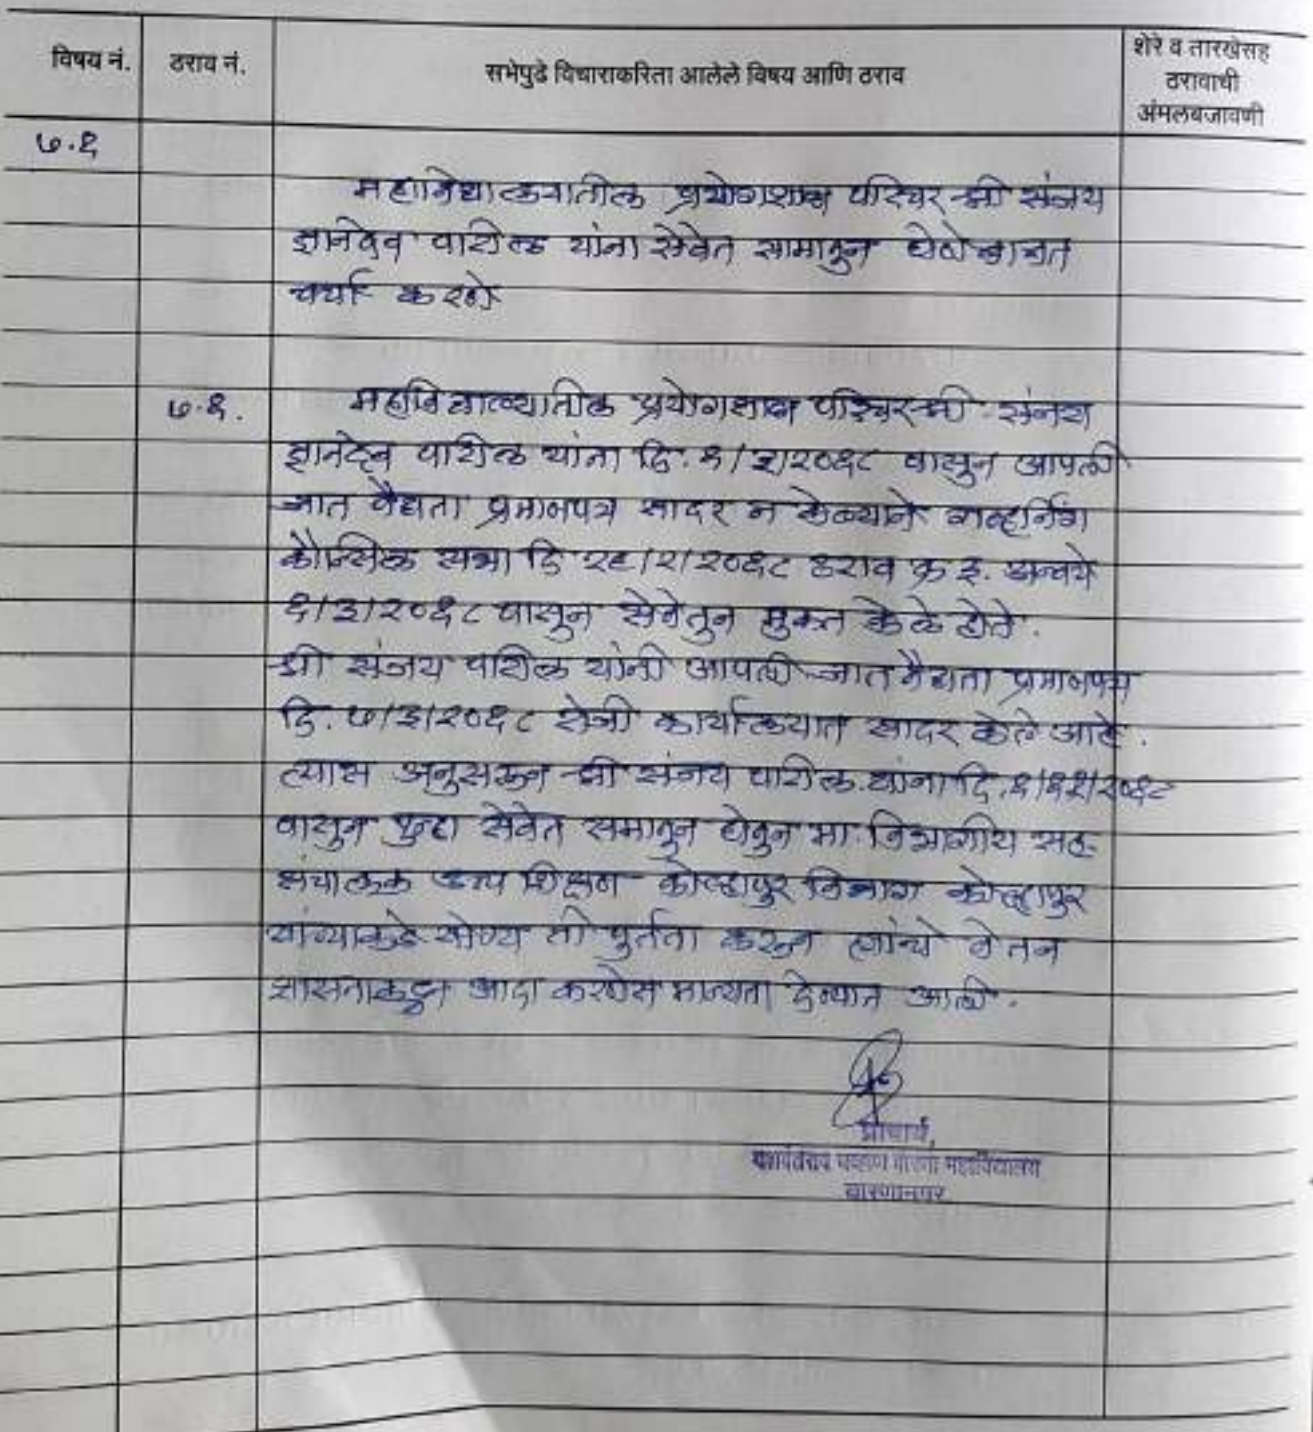 विषय नं.
ठराव नं.
सभेपुढे विचाराकरिता आलेले विषय आणि ठराव
शेरे व तारखेसह
ठरावाची
अंमलबजावणी
७.१
महाविद्यालयातील प्रयोगशाळा परिचर श्री संजय
ज्ञानदेव पाटील यांना सेवेत सामावून घेणेबाबत
चर्चा करणे
७.१.
महाविद्यालयातील प्रयोगशाळा परिचर श्री संजय
ज्ञानदेव पाटील यांना दि. १/३/२०१८ पासून आपली
जात वैधता प्रमाणपत्र सादर न केल्याने गव्हर्निंग
कौन्सिल सभा दि २८/२/२०१८ ठराव क्र इ. अन्वये
१/३/२०१८ पासून सेवेतुन मुक्त केले होते.
श्री संजय पाटील यांनी आपली जात वैधता प्रमाणपत्र
दि. ७/३/२०१८ रोजी कार्यालयात सादर केले आहे.
त्यास अनुसरून श्री संजय पाटील यांना दि. १/११/२०१८
पासुन पुन्हा सेवेत समावून घेवुन मा. विभागीय सह-
संचालक उच्च शिक्षण कोल्हापुर विभाग कोल्हापुर
यांच्याकडे योग्य ती पुर्तता करुन त्यांचे वेतन
शासनाकडून आदा करणेस मान्यता देण्यात आली.
प्राचार्य,
यशवंतराव चव्हाण वारणा महाविद्यालय
वारणानगर